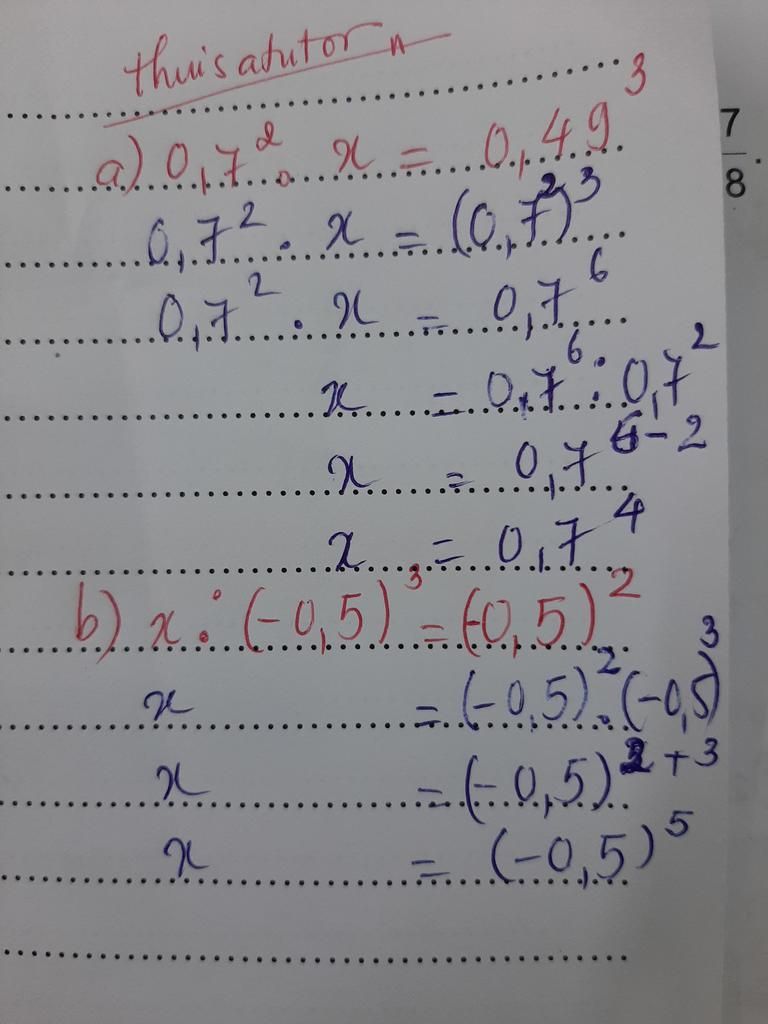 thuisadutor
a) 0,7². x = 0,49³
0,7² . x = (0,7²)³
0,7² . x = 0,7⁶
x = 0,7⁶ : 0,7²
x = 0,7⁶⁻²
x = 0,7⁴
b) x : (-0,5)³ = (-0,5)²
x = (-0,5)².(-0,5)³
x = (-0,5)²⁺³
x = (-0,5)⁵
7
8